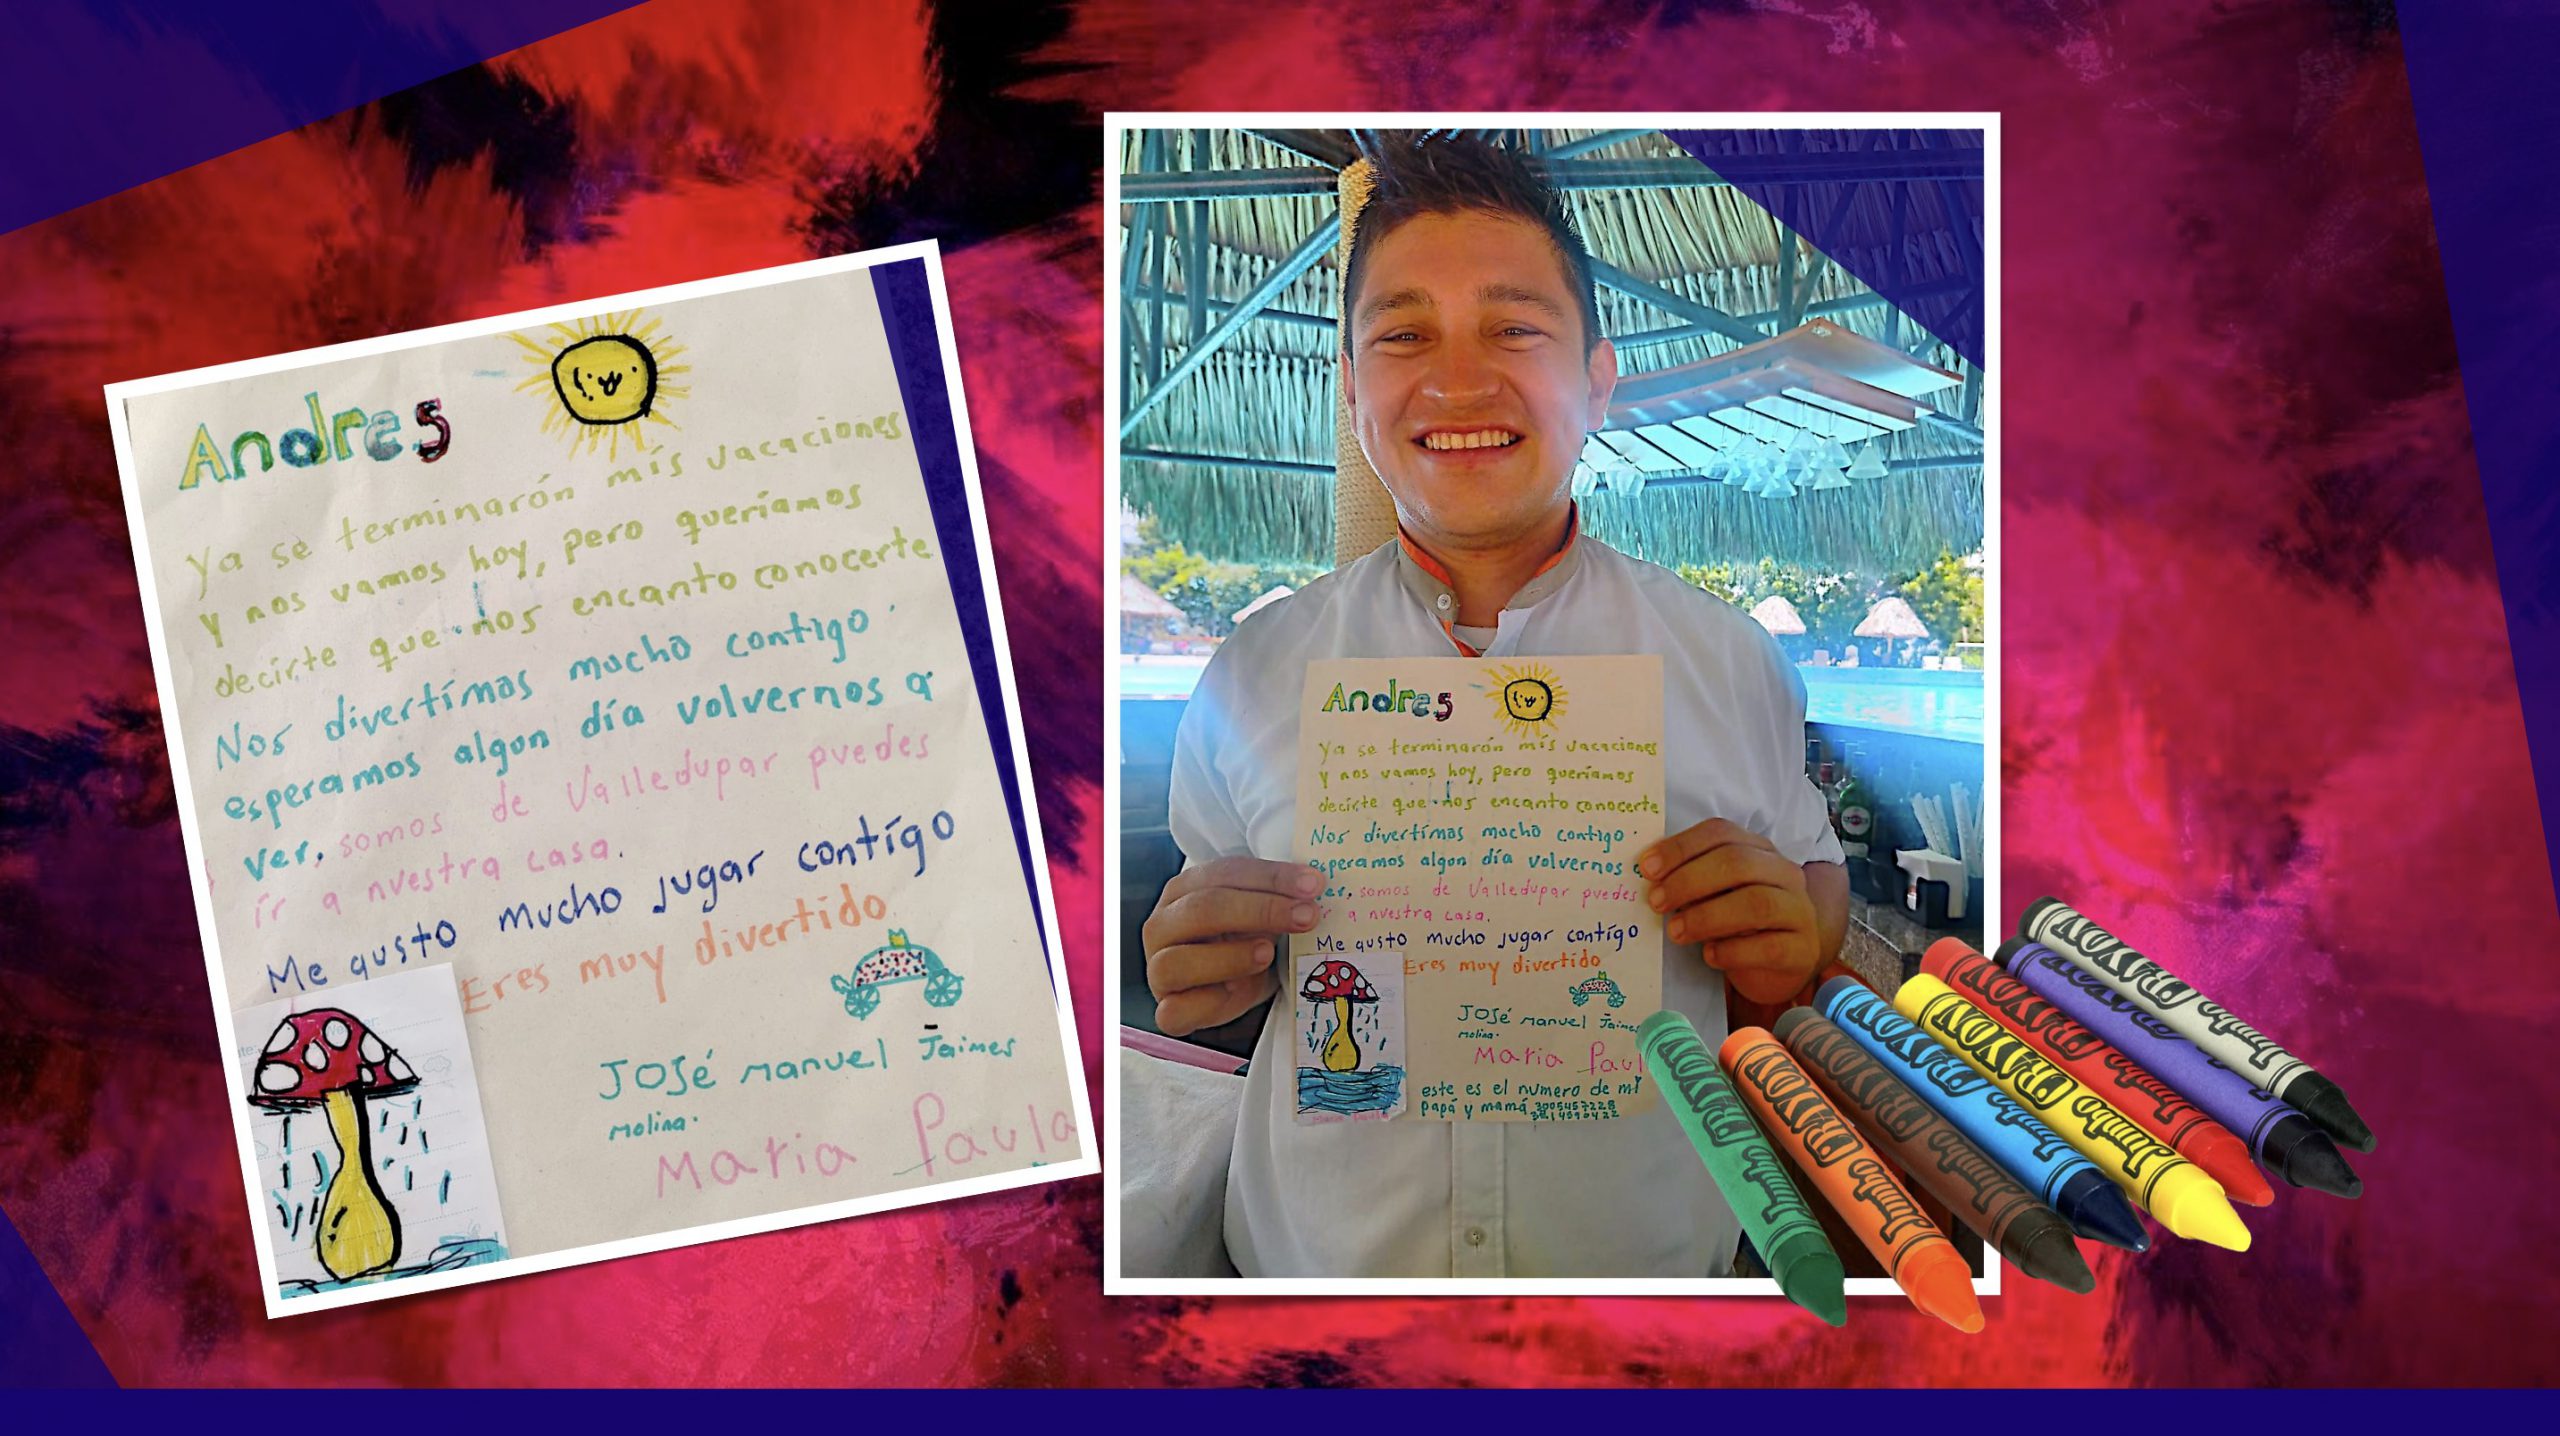 Andres
Ya se terminarón mís vacaciones
y nos vamos hoy, pero queríamos
decirte que nos encanto conocerte
Nos divertímos mucho contigo.
esperamos algun día volvernos a
ver, somos de Valledupar puedes
ír a nuestra casa.
Me gusto mucho jugar contígo
Eres muy divertido
JOSé manuel Jaimes
molina.
Maria Paula
Andres
Ya se terminarón mís vacaciones
y nos vamos hoy, pero queríamos
decirte que nos encanto conocerte
Nos divertímos mucho contigo.
esperamos algun día volvernos a
ver, somos de Valledupar puedes
ír a nuestra casa.
Me gusto mucho jugar contígo
Eres muy divertido
JOSé manuel Jaimes
molina.
Maria Paul
este es el numero de mi
papá y mamá
Jumbo CRAYON
Jumbo CRAYON
Jumbo CRAYON
Jumbo CRAYON
Jumbo CRAYON
Jumbo CRAYON
Jumbo CRAYON
Jumbo CRAYON